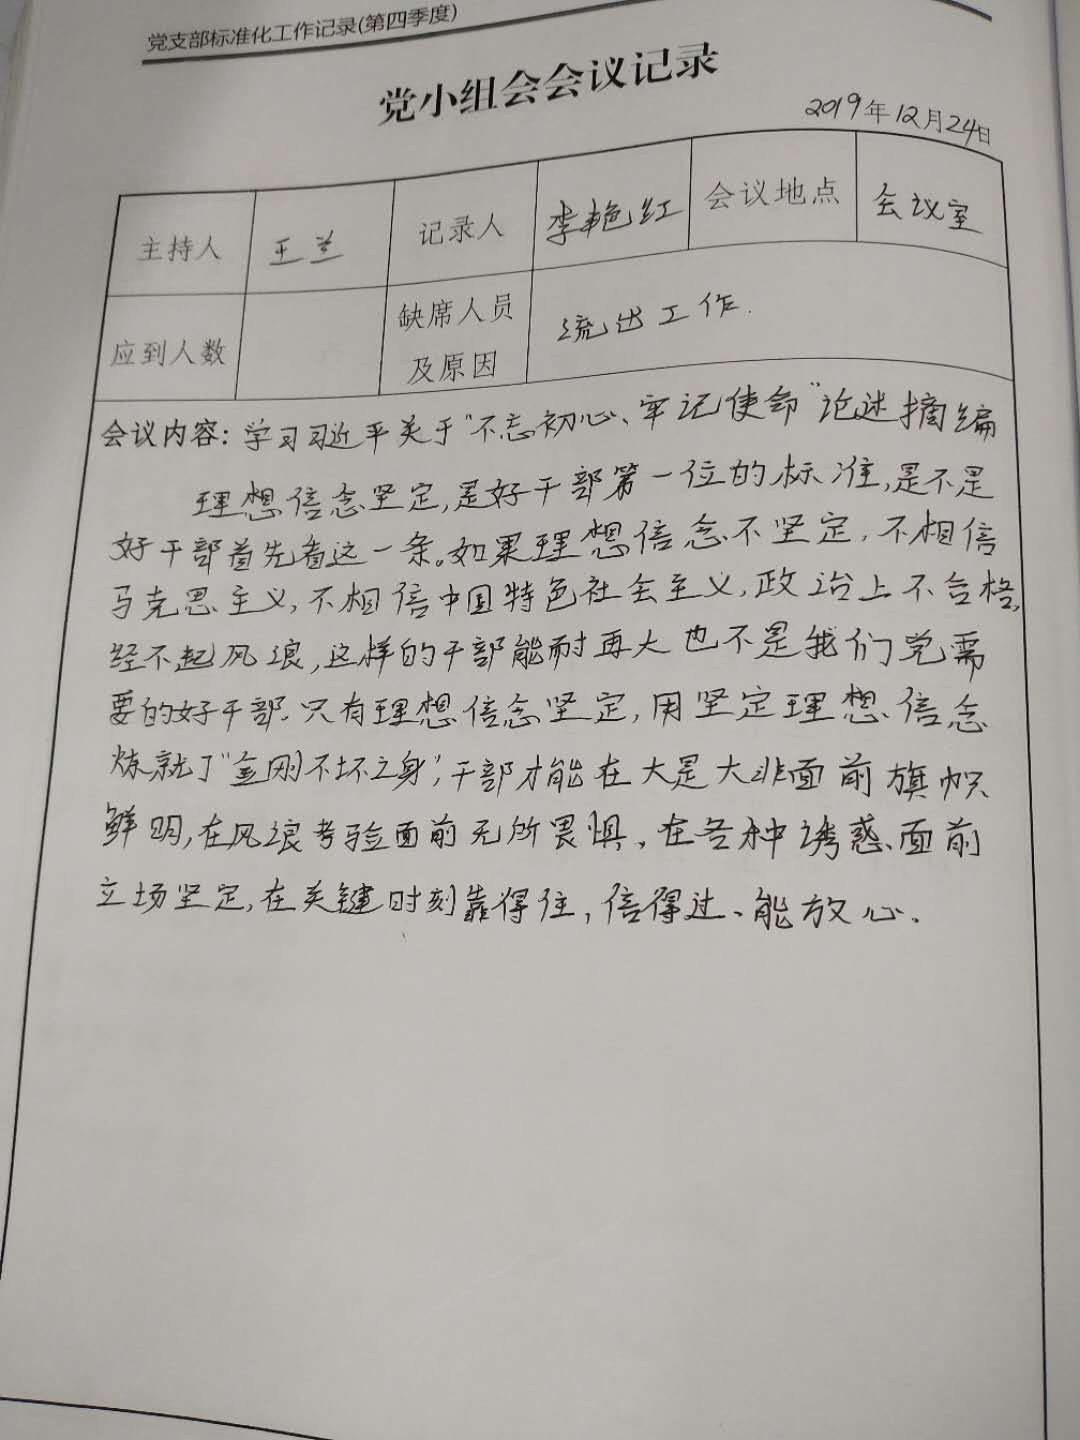 党支部标准化工作记录(第四季度)
党小组会会议记录
2019年12月24日
主持人 王兰 记录人 李艳红 会议地点 会议室
应到人数 缺席人员及原因 流出工作.
会议内容：学习习近平关于“不忘初心、牢记使命”论述摘编
理想信念坚定,是好干部第一位的标准,是不是
好干部首先看这一条。如果理想信念不坚定,不相信
马克思主义,不相信中国特色社会主义,政治上不合格,
经不起风浪,这样的干部能耐再大也不是我们党需
要的好干部.只有理想信念坚定,用坚定理想信念
炼就了“金刚不坏之身”,干部才能在大是大非面前旗帜
鲜明,在风浪考验面前无所畏惧,在各种诱惑面前
立场坚定,在关键时刻靠得住,信得过、能放心、